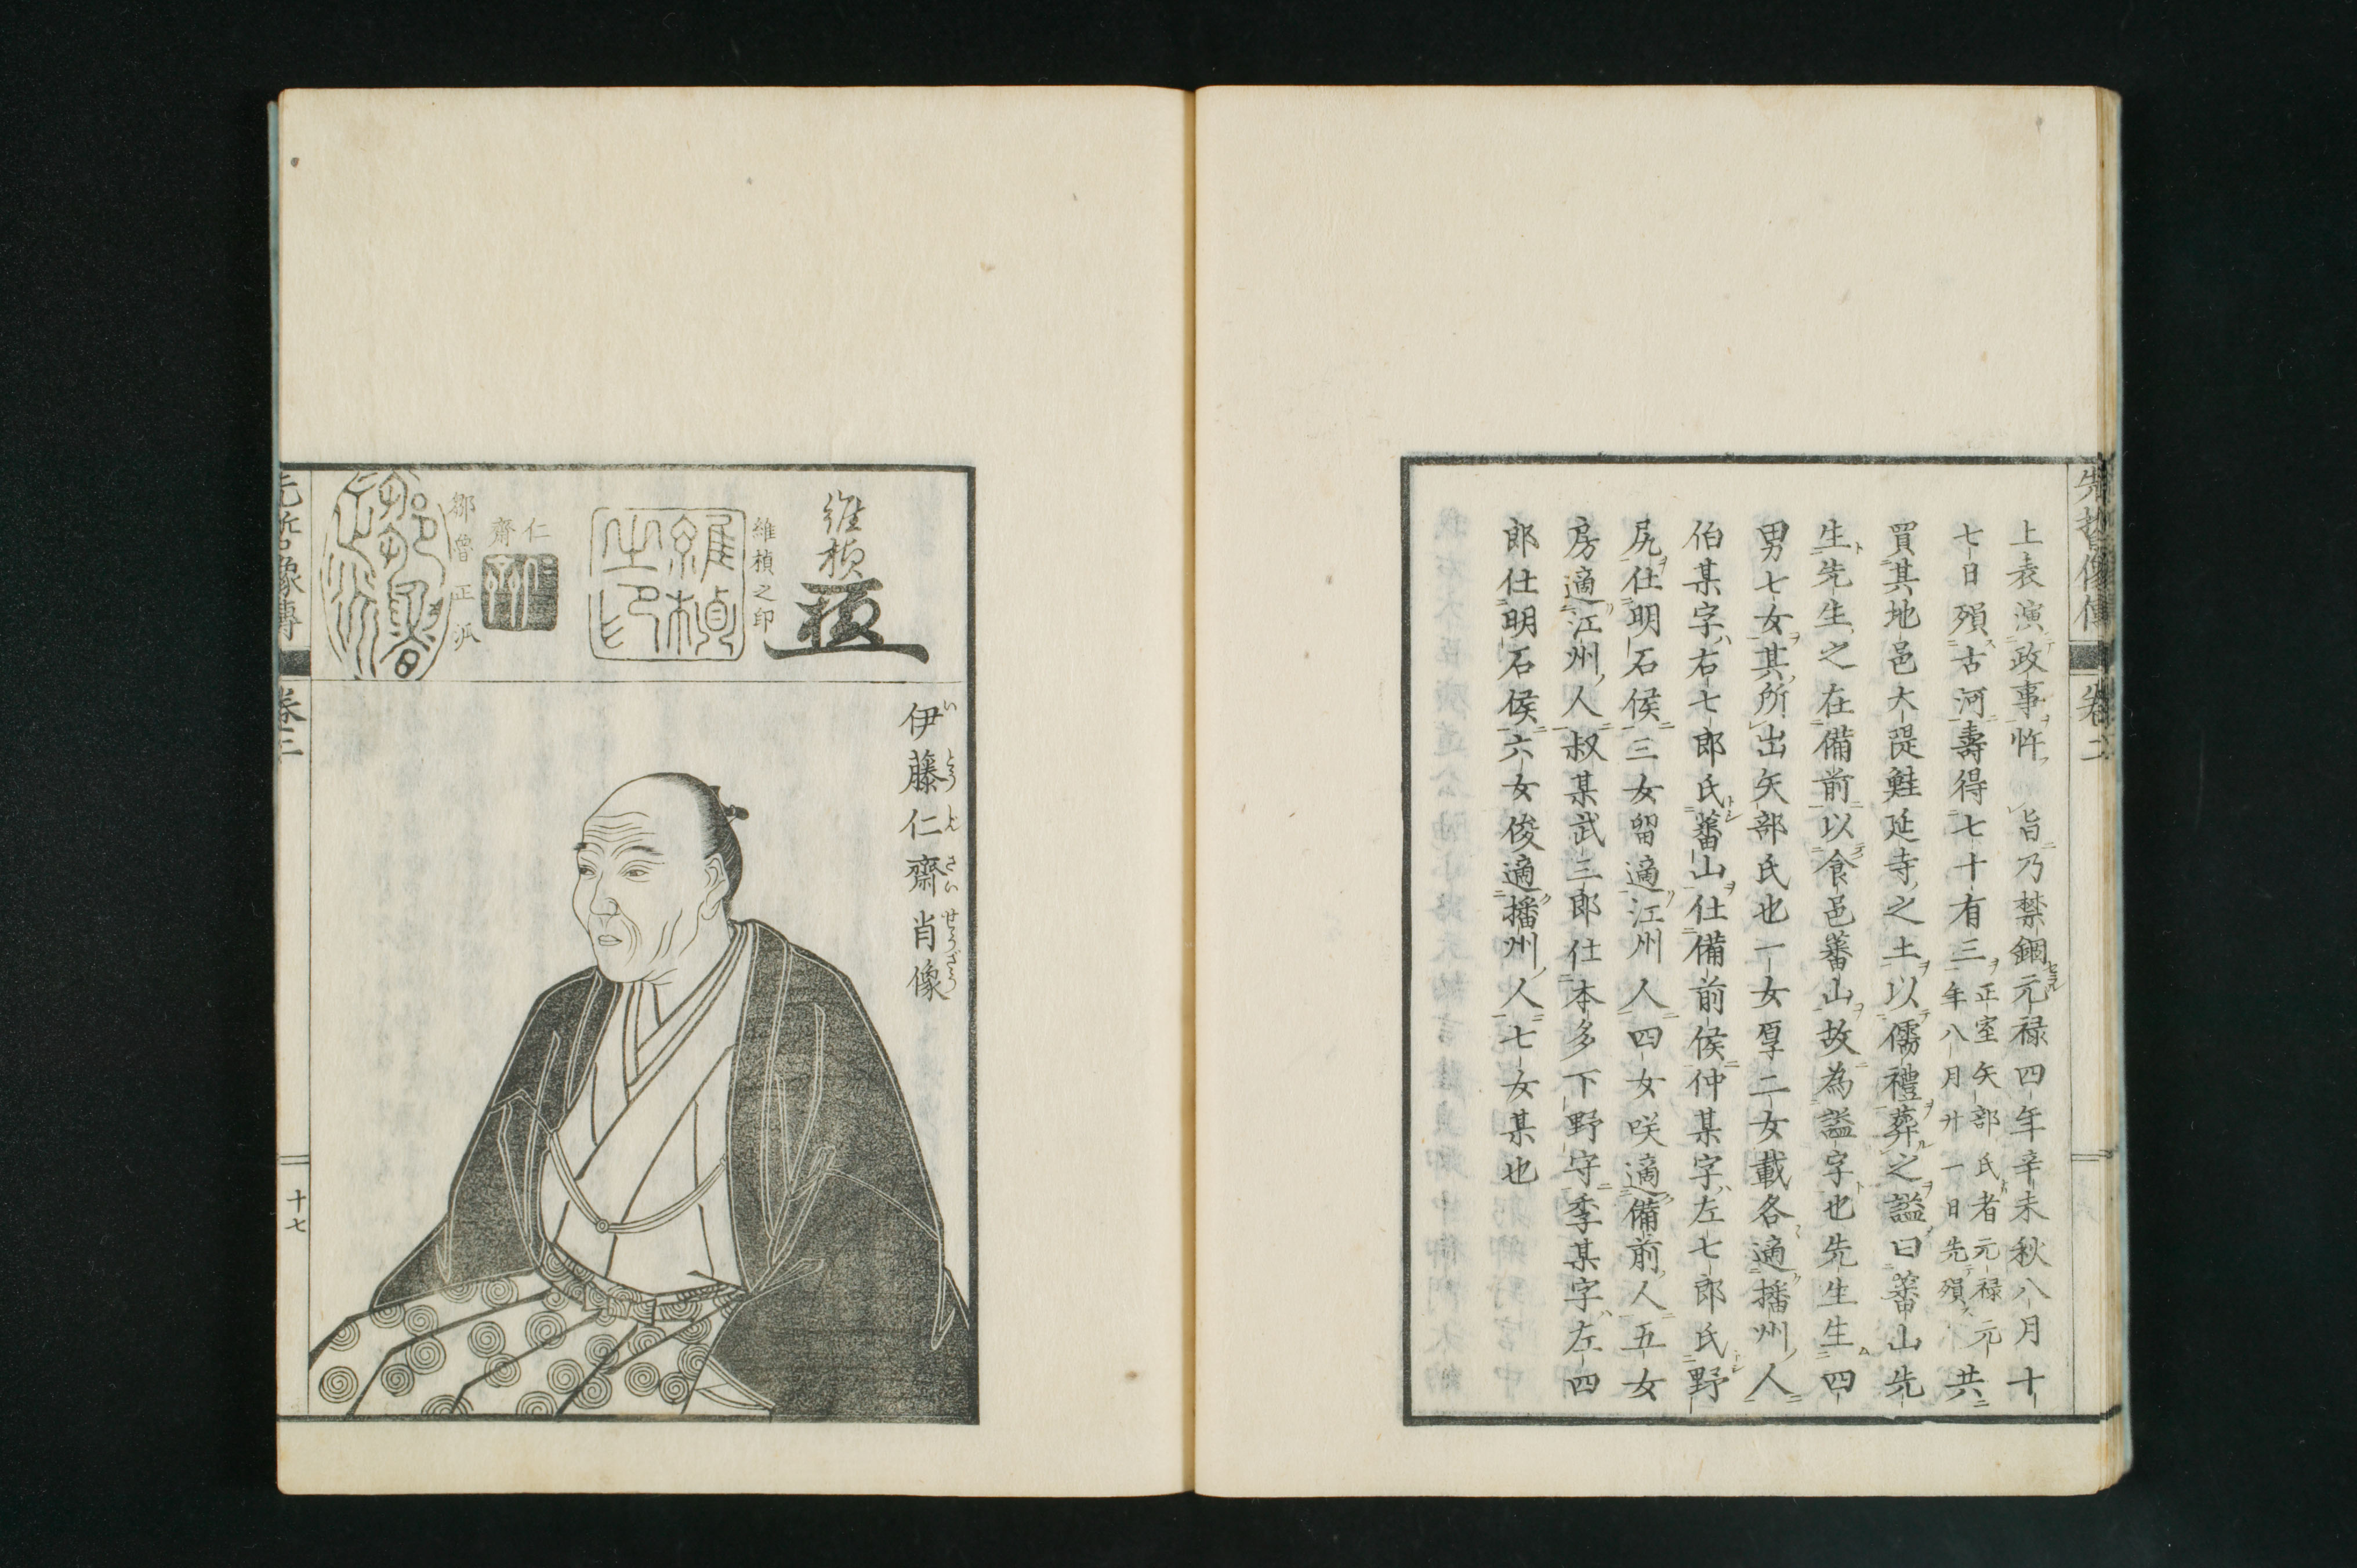 先哲像傳
卷二
上表演政事忤　旨乃禁錮元禄四年辛未秋八月十
七日殞古河壽得七十有三正室矢部氏者元禄元年八月廾一日先殞共
買其地邑大隄鮭延寺之土以儒禮葬之諡曰蕃山先
生先生之在備前以食邑蕃山故為諡字也先生生四
男七女其所出矢部氏也一女厚二女載各適播州人
伯某字右七郎氏蕃山仕備前侯仲某字左七郎氏野
尻仕明石侯三女畱適江州人四女咲適備前人五女
房適江州人叔某武三郎仕本多下野守季某字左四
郎仕明石侯六女俊適播州人七女某也
維楨
維楨之印
維楨之印
仁齋
仁齋
鄒魯正派
鄒魯正派
伊藤仁齋肖像
いとうじんさいせうざう
先哲像傳
卷三
十七